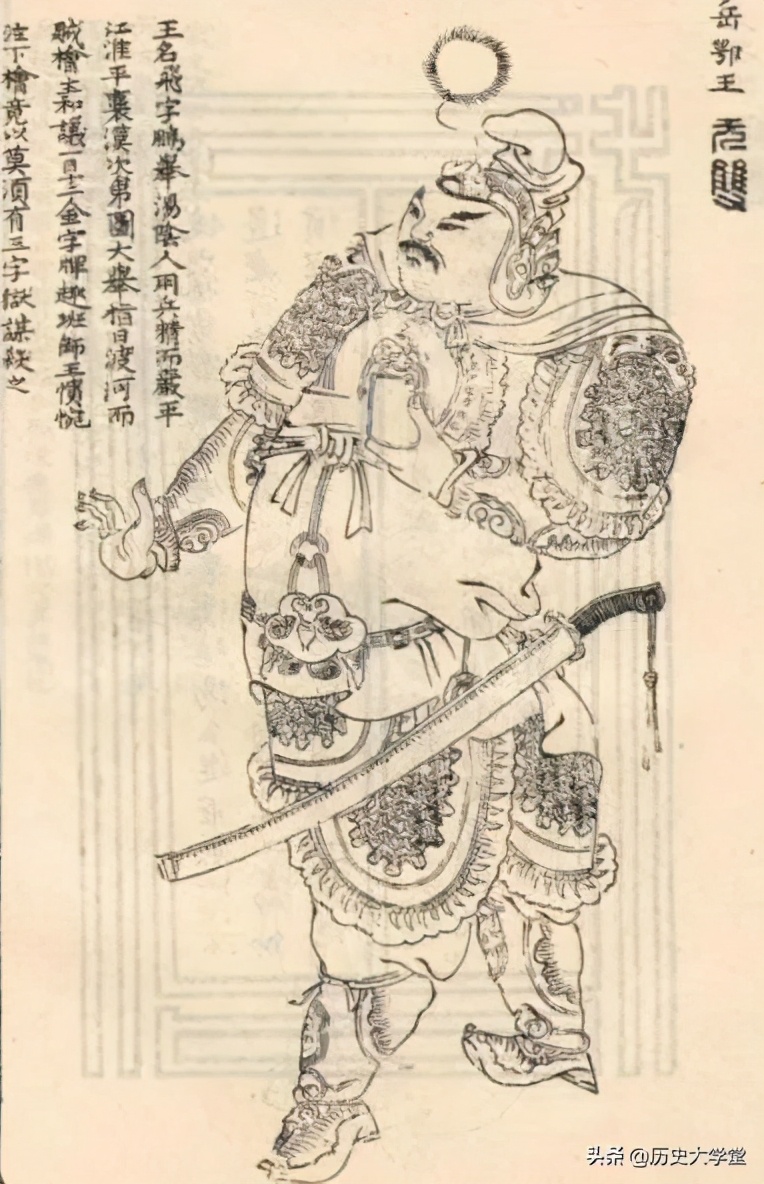 岳鄂王 无雙
王名飛字鵬舉湯陰人用兵精而嚴平
江淮平襄漢次弟圖大舉指日渡河而
賊檜主和議一日十二金字牌趣班師王憤惋
泣下檜竟以莫須有三字獄謀殺之
头条 @历史大学堂